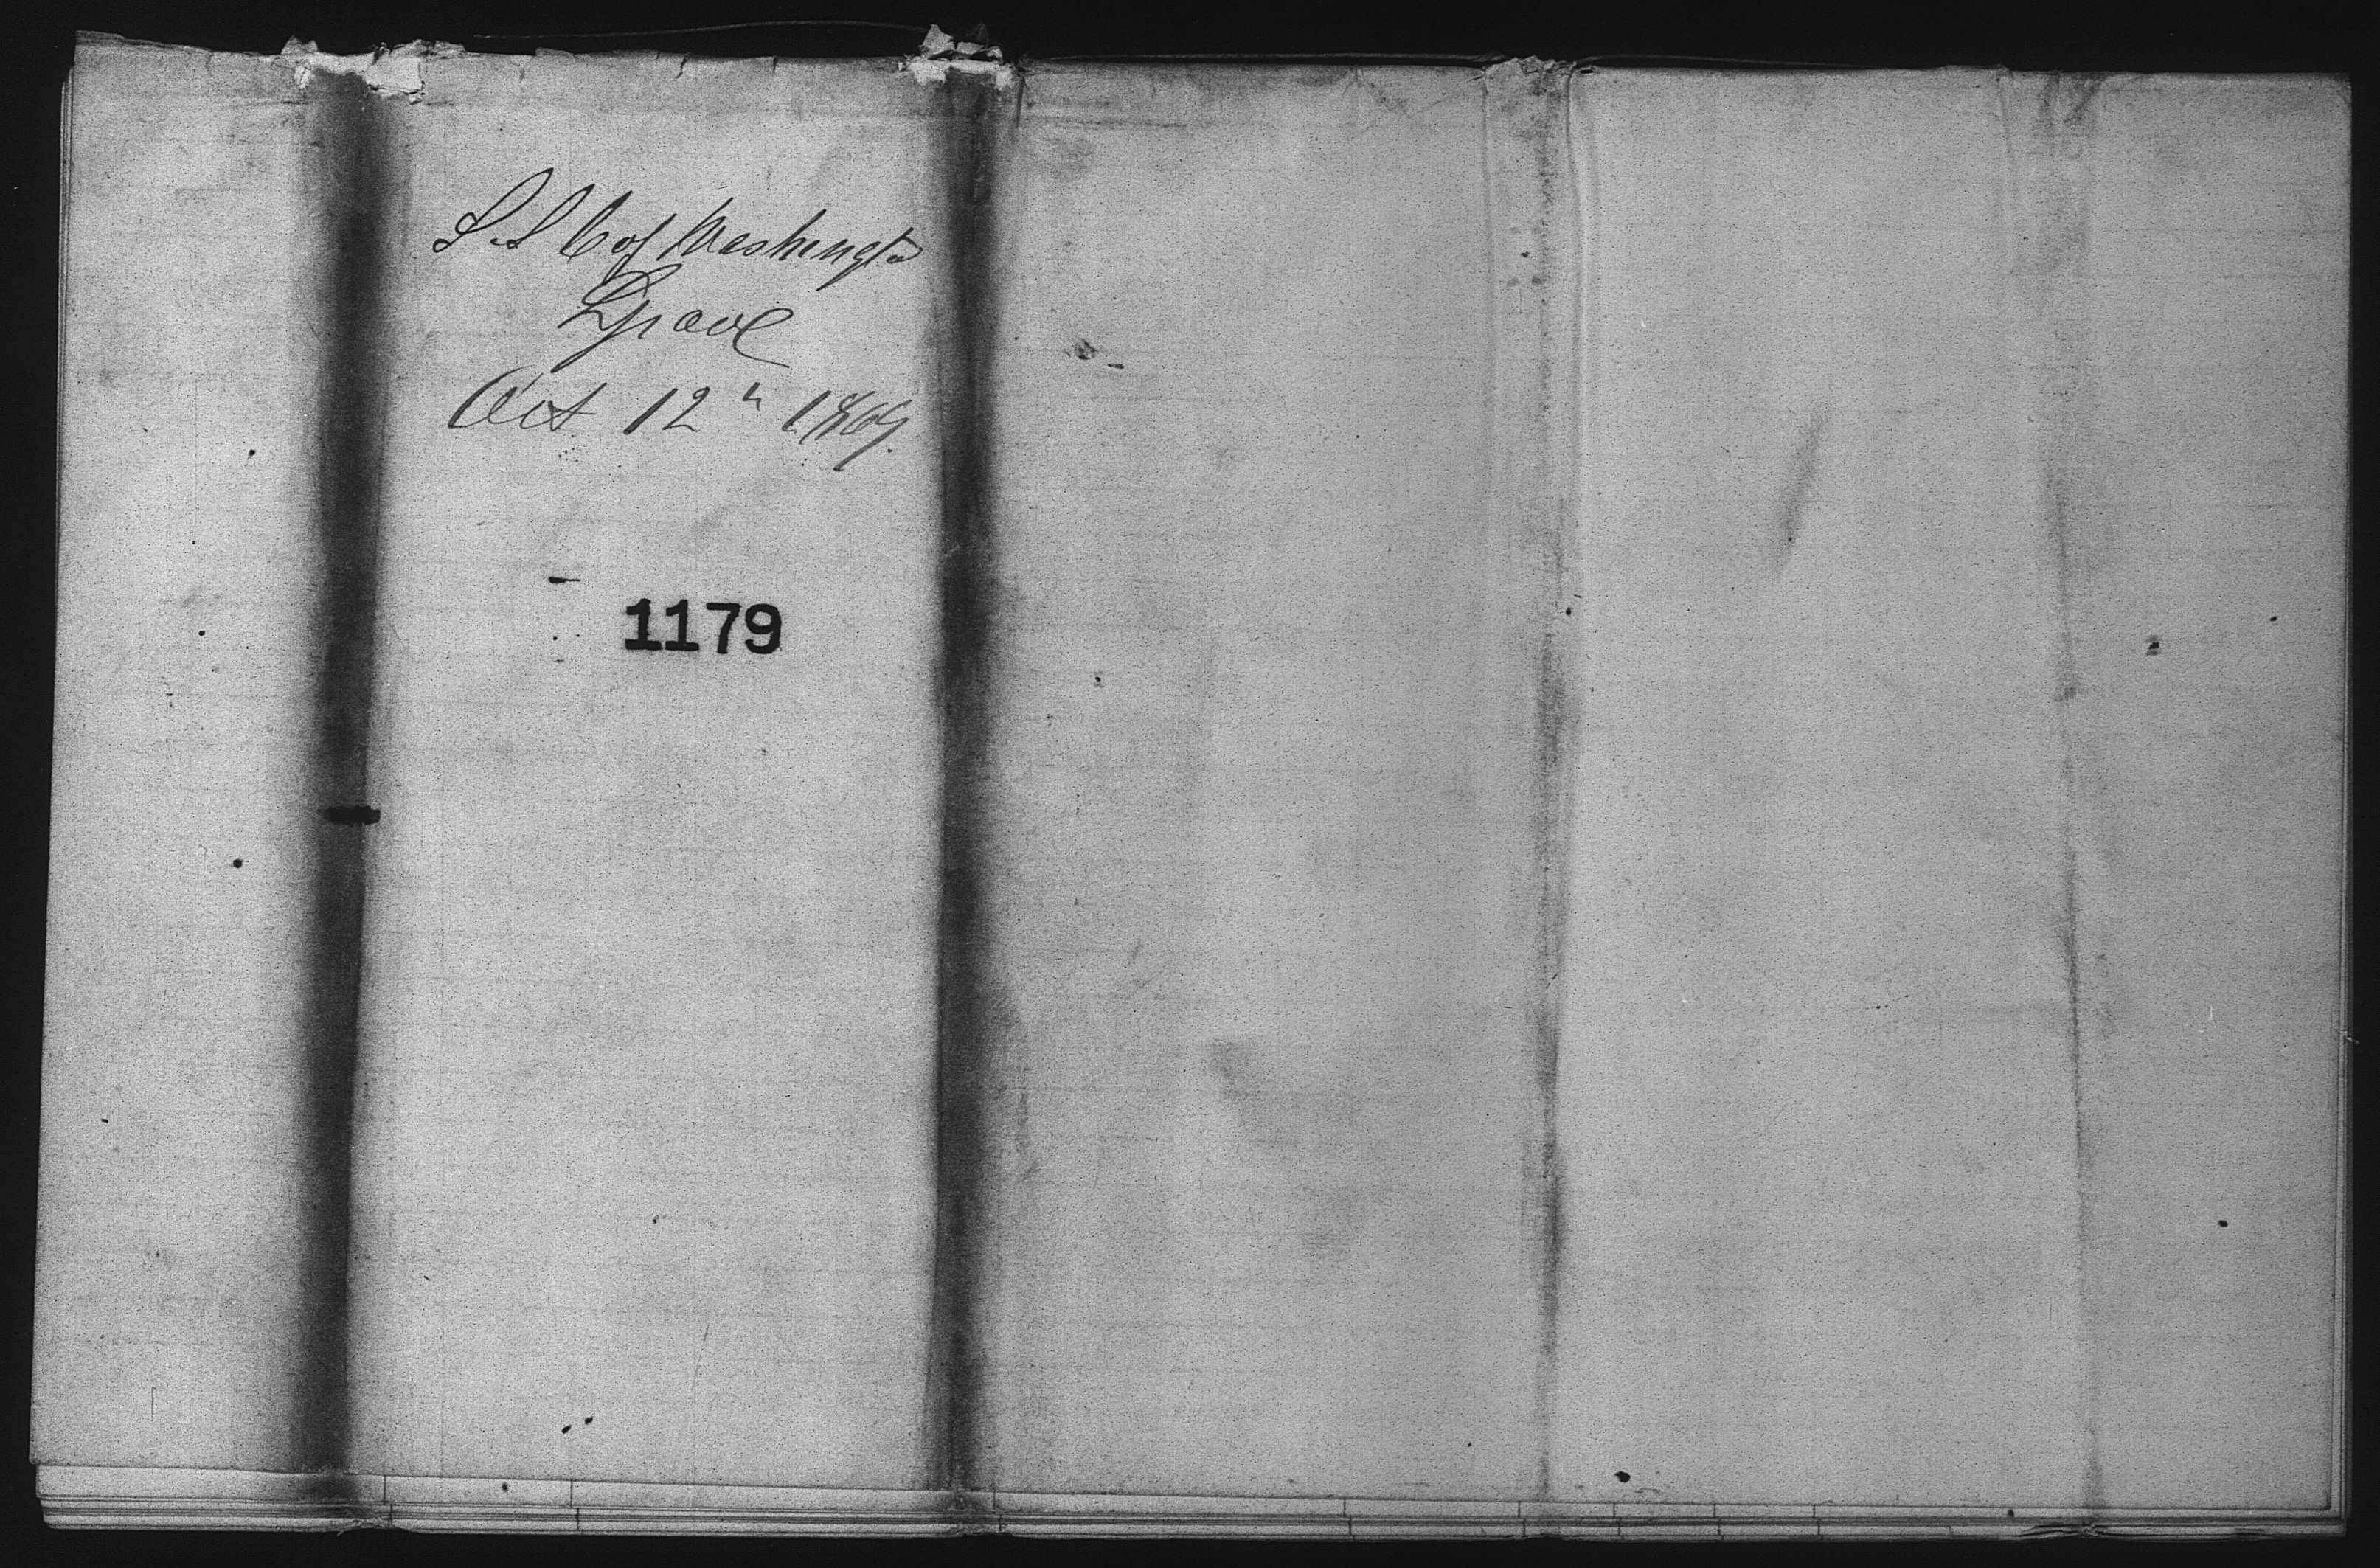 S. S. C of Washington
Grave
Oct 12" 1869.
1179